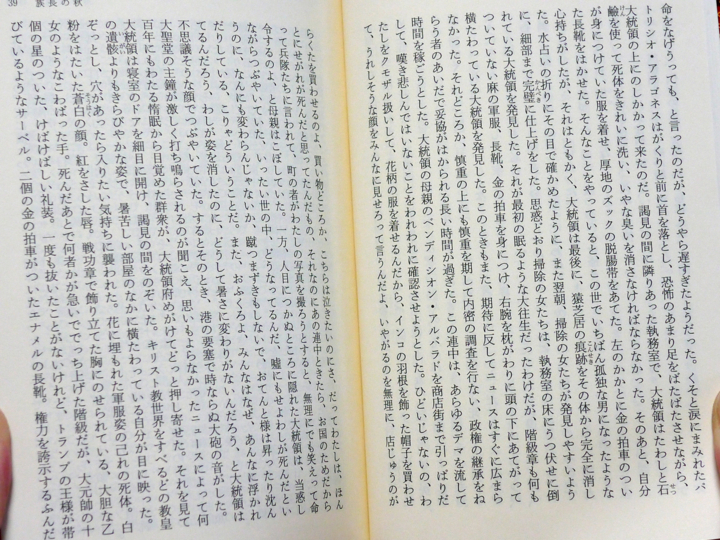 命をなげうっても、と言ったのだが、どうやら遅すぎたようだった。くそと涙にまみれたパ
トリシオ・アラゴネスはがくりと前に首を落とし、恐怖のあまり足をばたばたさせながら、
大統領の上にのしかかって来たのだ。謁見の間に隣りあった執務室で、大統領はたわしと石
鹼を使って死体をきれいに洗い、いやな臭いを消さなければならなかった。そのあと、自分
が身につけていた服を着せ、厚地のズックの脱腸帯をあてた。左のかかとに金の拍車のつい
た長靴をはかせた。そんなことをやっていると、この世でいちばん孤独な男になったような
心持ちがしたが、それはともかく、大統領は最後に、猿芝居の痕跡をその体から完全に消し
た。水占いの折りにその目で確かめたように、また翌朝、掃除の女たちが発見しやすいよう
に、細部まで完璧に仕上げをした。思惑どおり掃除の女たちは、執務室の床にうつ伏せに倒
れている大統領を発見した。それが最初の眠るような大往生だったわけだが、階級章も何も
ついていない麻の軍服、長靴、金の拍車を身につけ、右腕を枕がわりに頭の下にあてがって
横たわっている大統領を発見した。このときもまた、期待に反してニュースはすぐに広まら
なかった。それどころか、慎重の上にも慎重を期して内密の調査を行ない、政権の継承をね
らう者のあいだで妥協がはかられる長い時間が過ぎた。この連中は、あらゆるデマを流して
時間を稼ごうとした。大統領の母親のベンディシオン・アルバラドを商店街まで引っぱりだ
して、嘆き悲しんではいないことをわれわれに確認させようとした。ひどいじゃないの、わ
たしをクモザル扱いして、花柄の服を着せるんだから、インコの羽根を飾った帽子を買わせ
て、うれしそうな顔をみんなに見せろって言うんだよ、いやがるのを無理に、店じゅうのが
らくたを買わせるのよ、買い物どころか、こちらは泣きたいのにさ、だってわたしは、ほん
とにせがれが死んだと思ってたんだもの、それなのにあの連中ときたら、お国のためだから
って兵隊たちに言われて、町の者がわたしの写真を撮ろうとすると、無理にでも笑えって命
令するのよ、と母親はこぼしていた。一方、人目につかぬところに隠れた大統領は、当惑し
ながらつぶやいていた、いったい世の中、どうなってるんだ、嘘にもせよわしが死んだとい
うのに、なんにも変わらんじゃないか、蹴つまずきもしないで、おてんと様は昇ったり沈ん
だりしている、こりゃどういうことだ、また、おふくろよ、みんなはなぜ、あんなに浮かれ
てるんだろう、わしが姿を消したのに、どうして暑さに変わりがないんだろう、と大統領は
不思議そうな顔でつぶやいていた。するとそのとき、港の要塞で時ならぬ大砲の音がした。
大聖堂の主鐘が激しく打ち鳴らされるのが聞こえ、思いもよらなかったニュースによって何
百年にもわたる惰眠から目覚めた群衆が、大統領府めがけてどっと押し寄せた。それを見て
大統領は寝室のドアを細目に開け、謁見の間をのぞいた。キリスト教世界をすべるどの教皇
の遺骸よりもきらびやかな姿で、暑苦しい部屋のなかに横たわっている自分が目に映った。
ぞっとし、穴があったら入りたい気持ちに襲われた。花に埋もれた軍服姿の己れの死体。白
粉をはたいた蒼白の顔。紅をさした唇。戦功章で飾り立てた胸にのせられている、大胆な乙
女のようなこわばった手。死んだあとで何者かが急いででっち上げた階級だが、大元帥の十
個の星のついた、けばけばしい礼装。一度も抜いたことがないけれど、トランプの王様が帯
びているようなサーベル。二個の金の拍車がついたエナメルの長靴。権力を誇示するふんだ
39 族長の秋